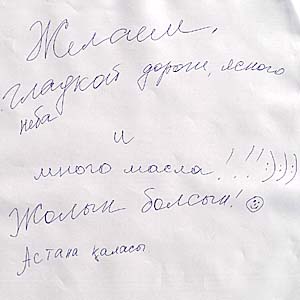 Желаем,
гладкой дороги, ясного
неба
и
много масла!!!:):):)
Жолын болсын!☺
Астана қаласы